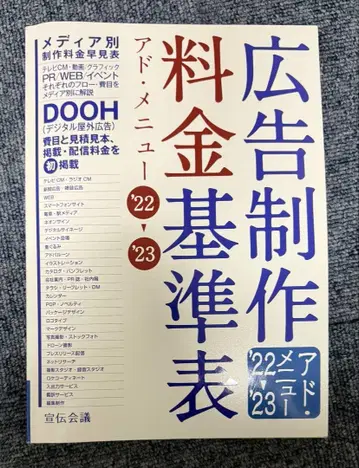 広告制作
料金基準表
アド・メニュー
'22▶'23
アド・
メニュー
'22▶'23
メディア別
制作料金早見表
テレビCM・動画/グラフィック
PR/WEB/イベント
それぞれのフロー・費目を
メディア別に解説
DOOH
(デジタル屋外広告)
費目と見積見本、
掲載・配信料金を
初掲載
テレビCM・ラジオCM
新聞広告・雑誌広告
WEB
スマートフォンサイト
電車・駅メディア
ネオンサイン
デジタルサイネージ
イベント会場
着ぐるみ
アドバルーン
イラストレーション
カタログ・パンフレット
会社案内・PR誌・社内報
チラシ・リーフレット・DM
カレンダー
POP・ノベルティ
パッケージデザイン
ロゴタイプ
マークデザイン
写真撮影・ストックフォト
ドローン撮影
プレスリリース配信
ネットリサーチ
撮影スタジオ・録音スタジオ
ロケコーディネート
入出力サービス
翻訳サービス
編集制作
宣伝会議